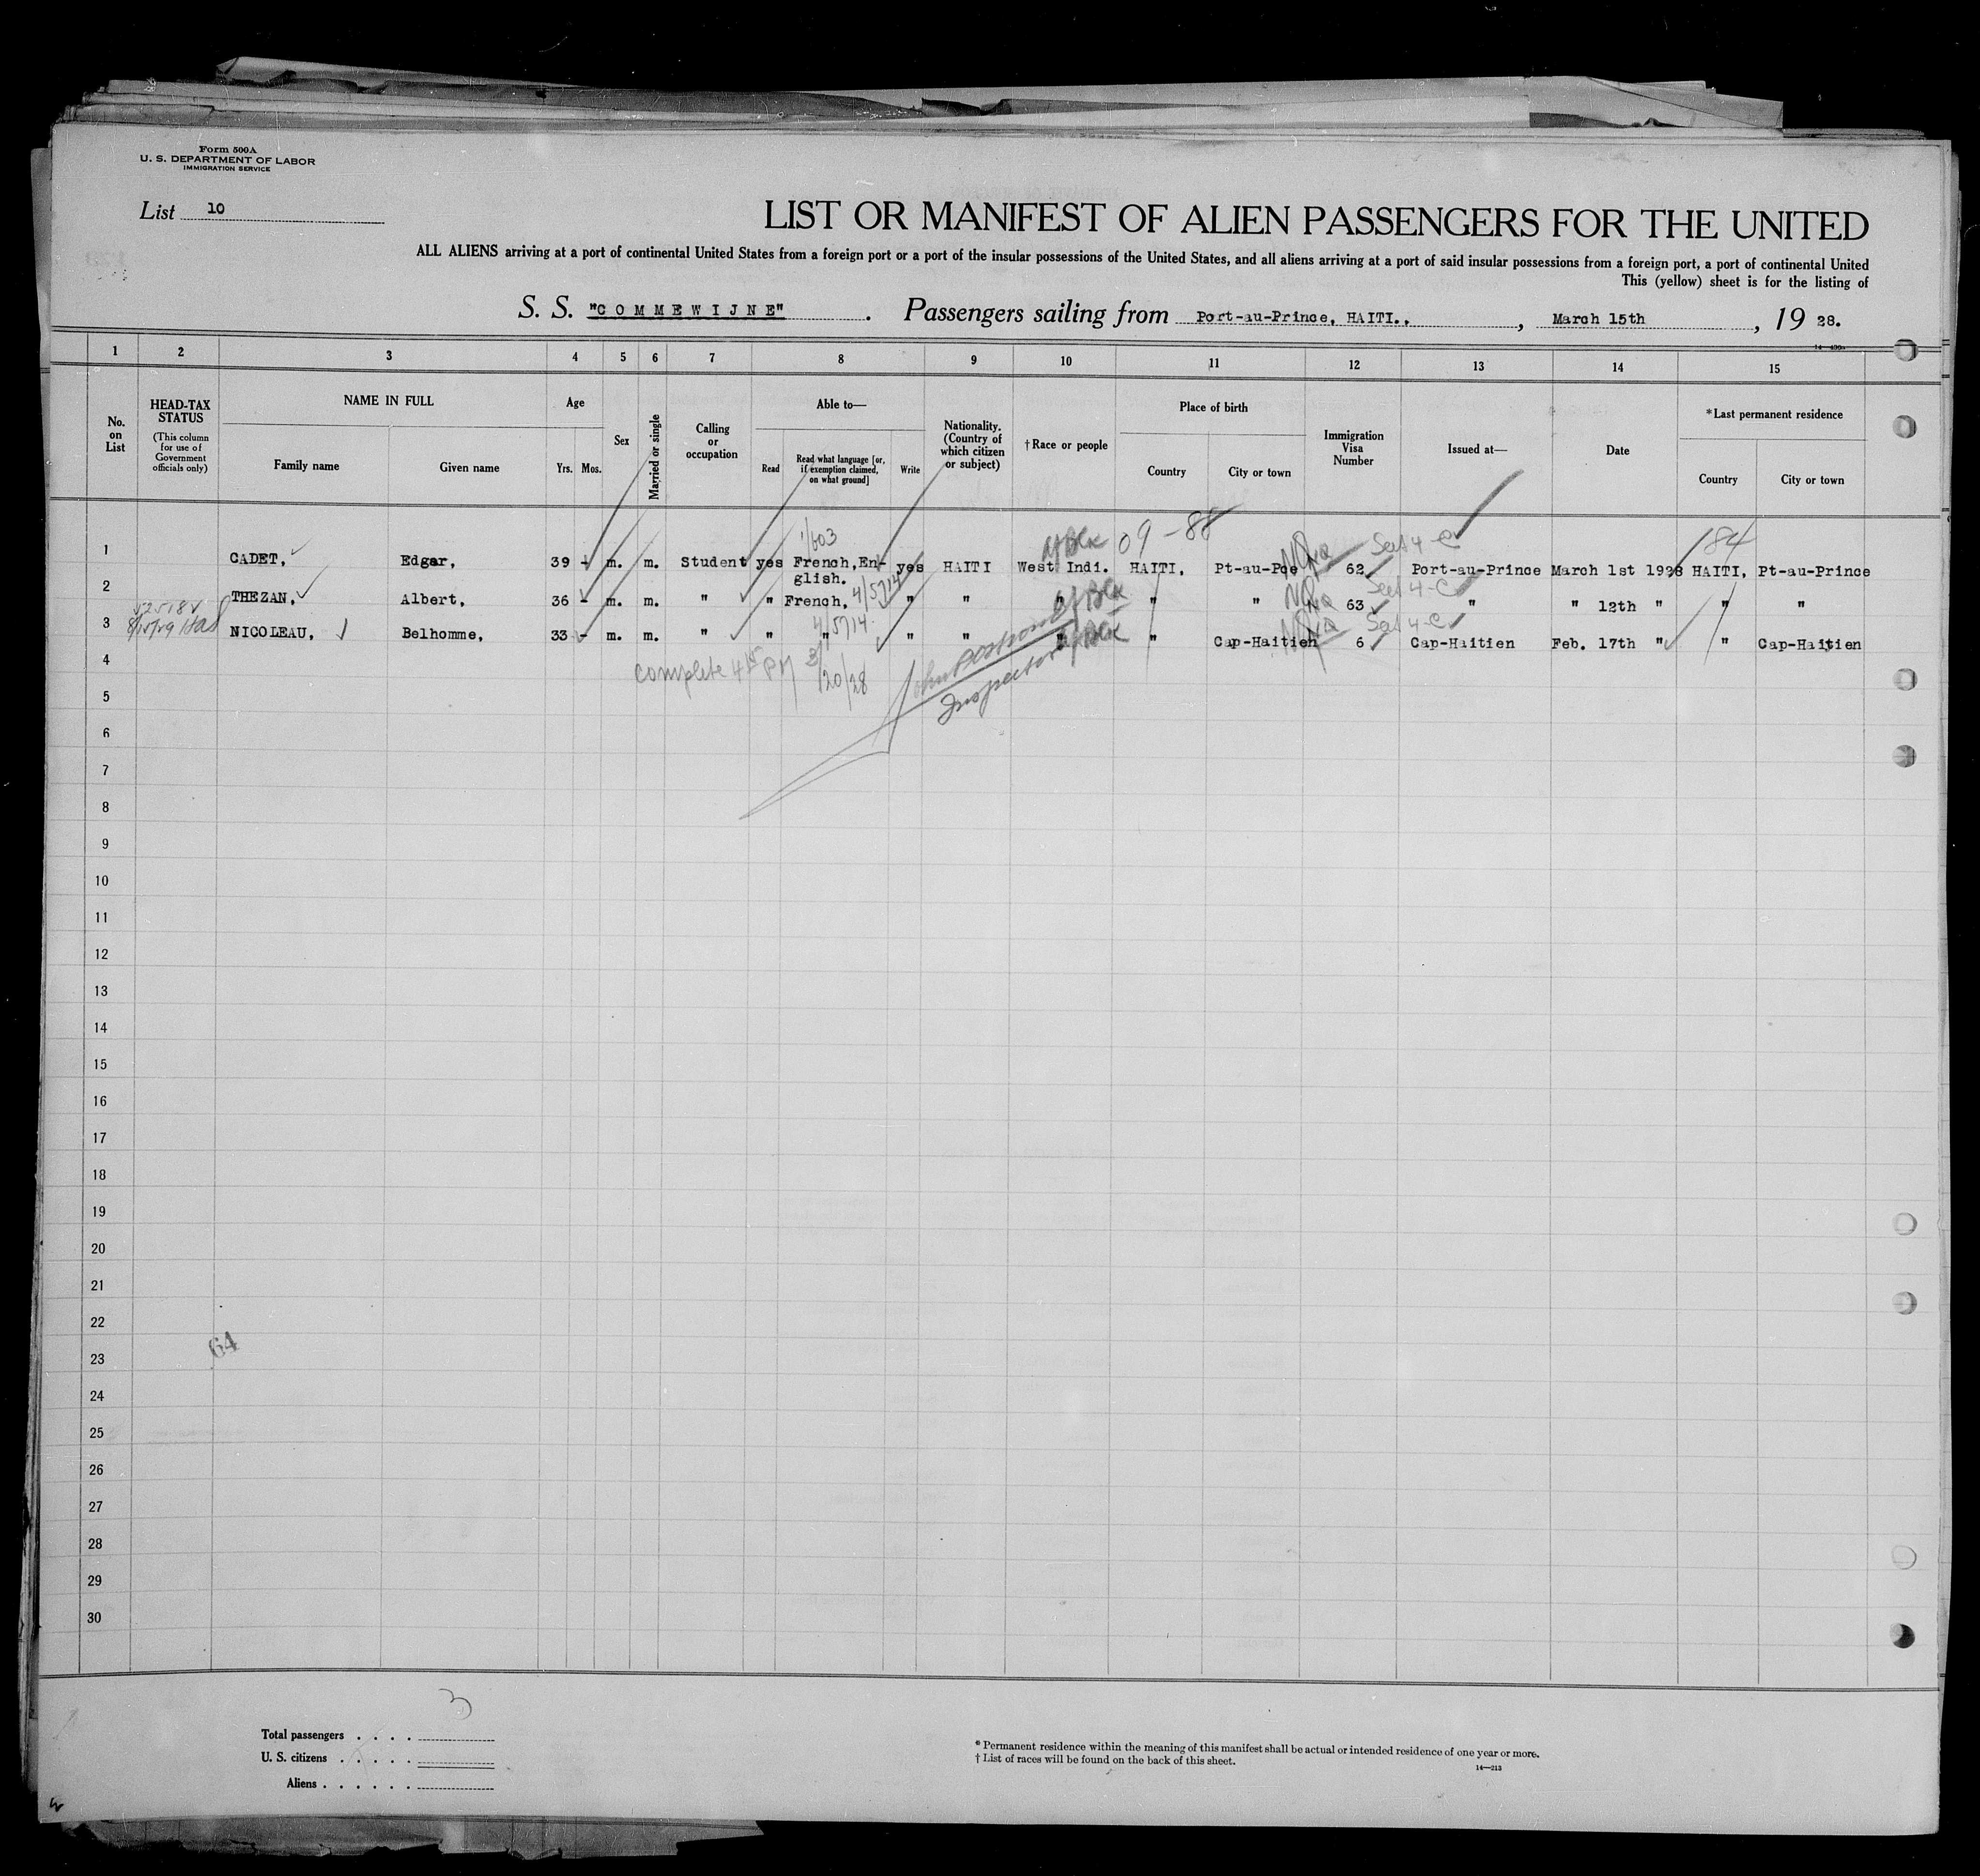 Form 500A
U. S. DEPARTMENT OF LABOR
IMMIGRATION SERVICE
List 10
LIST OR MANIFEST OF ALIEN PASSENGERS FOR THE UNITED
ALL ALIENS arriving at a port of continental United States from a foreign port or a port of the insular possessions of the United States, and all aliens arriving at a port of said insular possessions from a foreign port, a port of continental United
This (yellow) sheet is for the listing of
S. S. "COMMEWIJNE". Passengers sailing from Port-au-Prince, HAITI., , March 15th , 19 28.
1 2 3 4 5 6 7 8 9 10 11 12 13 14 15
No. on List
HEAD-TAX STATUS
(This column for use of Government officials only)
NAME IN FULL
Family name Given name
Age
Yrs. Mos.
Sex
Married or single
Calling or occupation
Able to—
Read
Read what language [or, if exemption claimed, on what ground]
Write
Nationality. (Country of which citizen or subject)
†Race or people
Place of birth
Country City or town
Immigration Visa Number
Issued at—
Date
*Last permanent residence
Country City or town
09-88
184
1 CADET, Edgar, 39 - m. m. Student yes French,En- yes HAITI West Indi. HAITI, Pt-au-Pce 62 Sect 4-C Port-au-Prince March 1st 1928 HAITI, Pt-au-Prince
glish.
2 THEZAN, Albert, 36 - m. m. " " French, 4/5714 " " " " " 63 Sect 4-C " " 12th " " "
3 NICOLEAU, Belhomme, 33 - m. m. " " " 4/5714 " " " " Cap-Haitien 6 Sect 4-C Cap-Haitien Feb. 17th " " Cap-Haitien
complete 4 15 PM 3/20/28
Inspector
4
5
6
7
8
9
10
11
12
13
14
15
16
17
18
19
20
21
22
64
23
24
25
26
27
28
29
30
3
Total passengers . . . .
U. S. citizens . . . . .
Aliens . . . . . .
* Permanent residence within the meaning of this manifest shall be actual or intended residence of one year or more.
† List of races will be found on the back of this sheet.
14—213